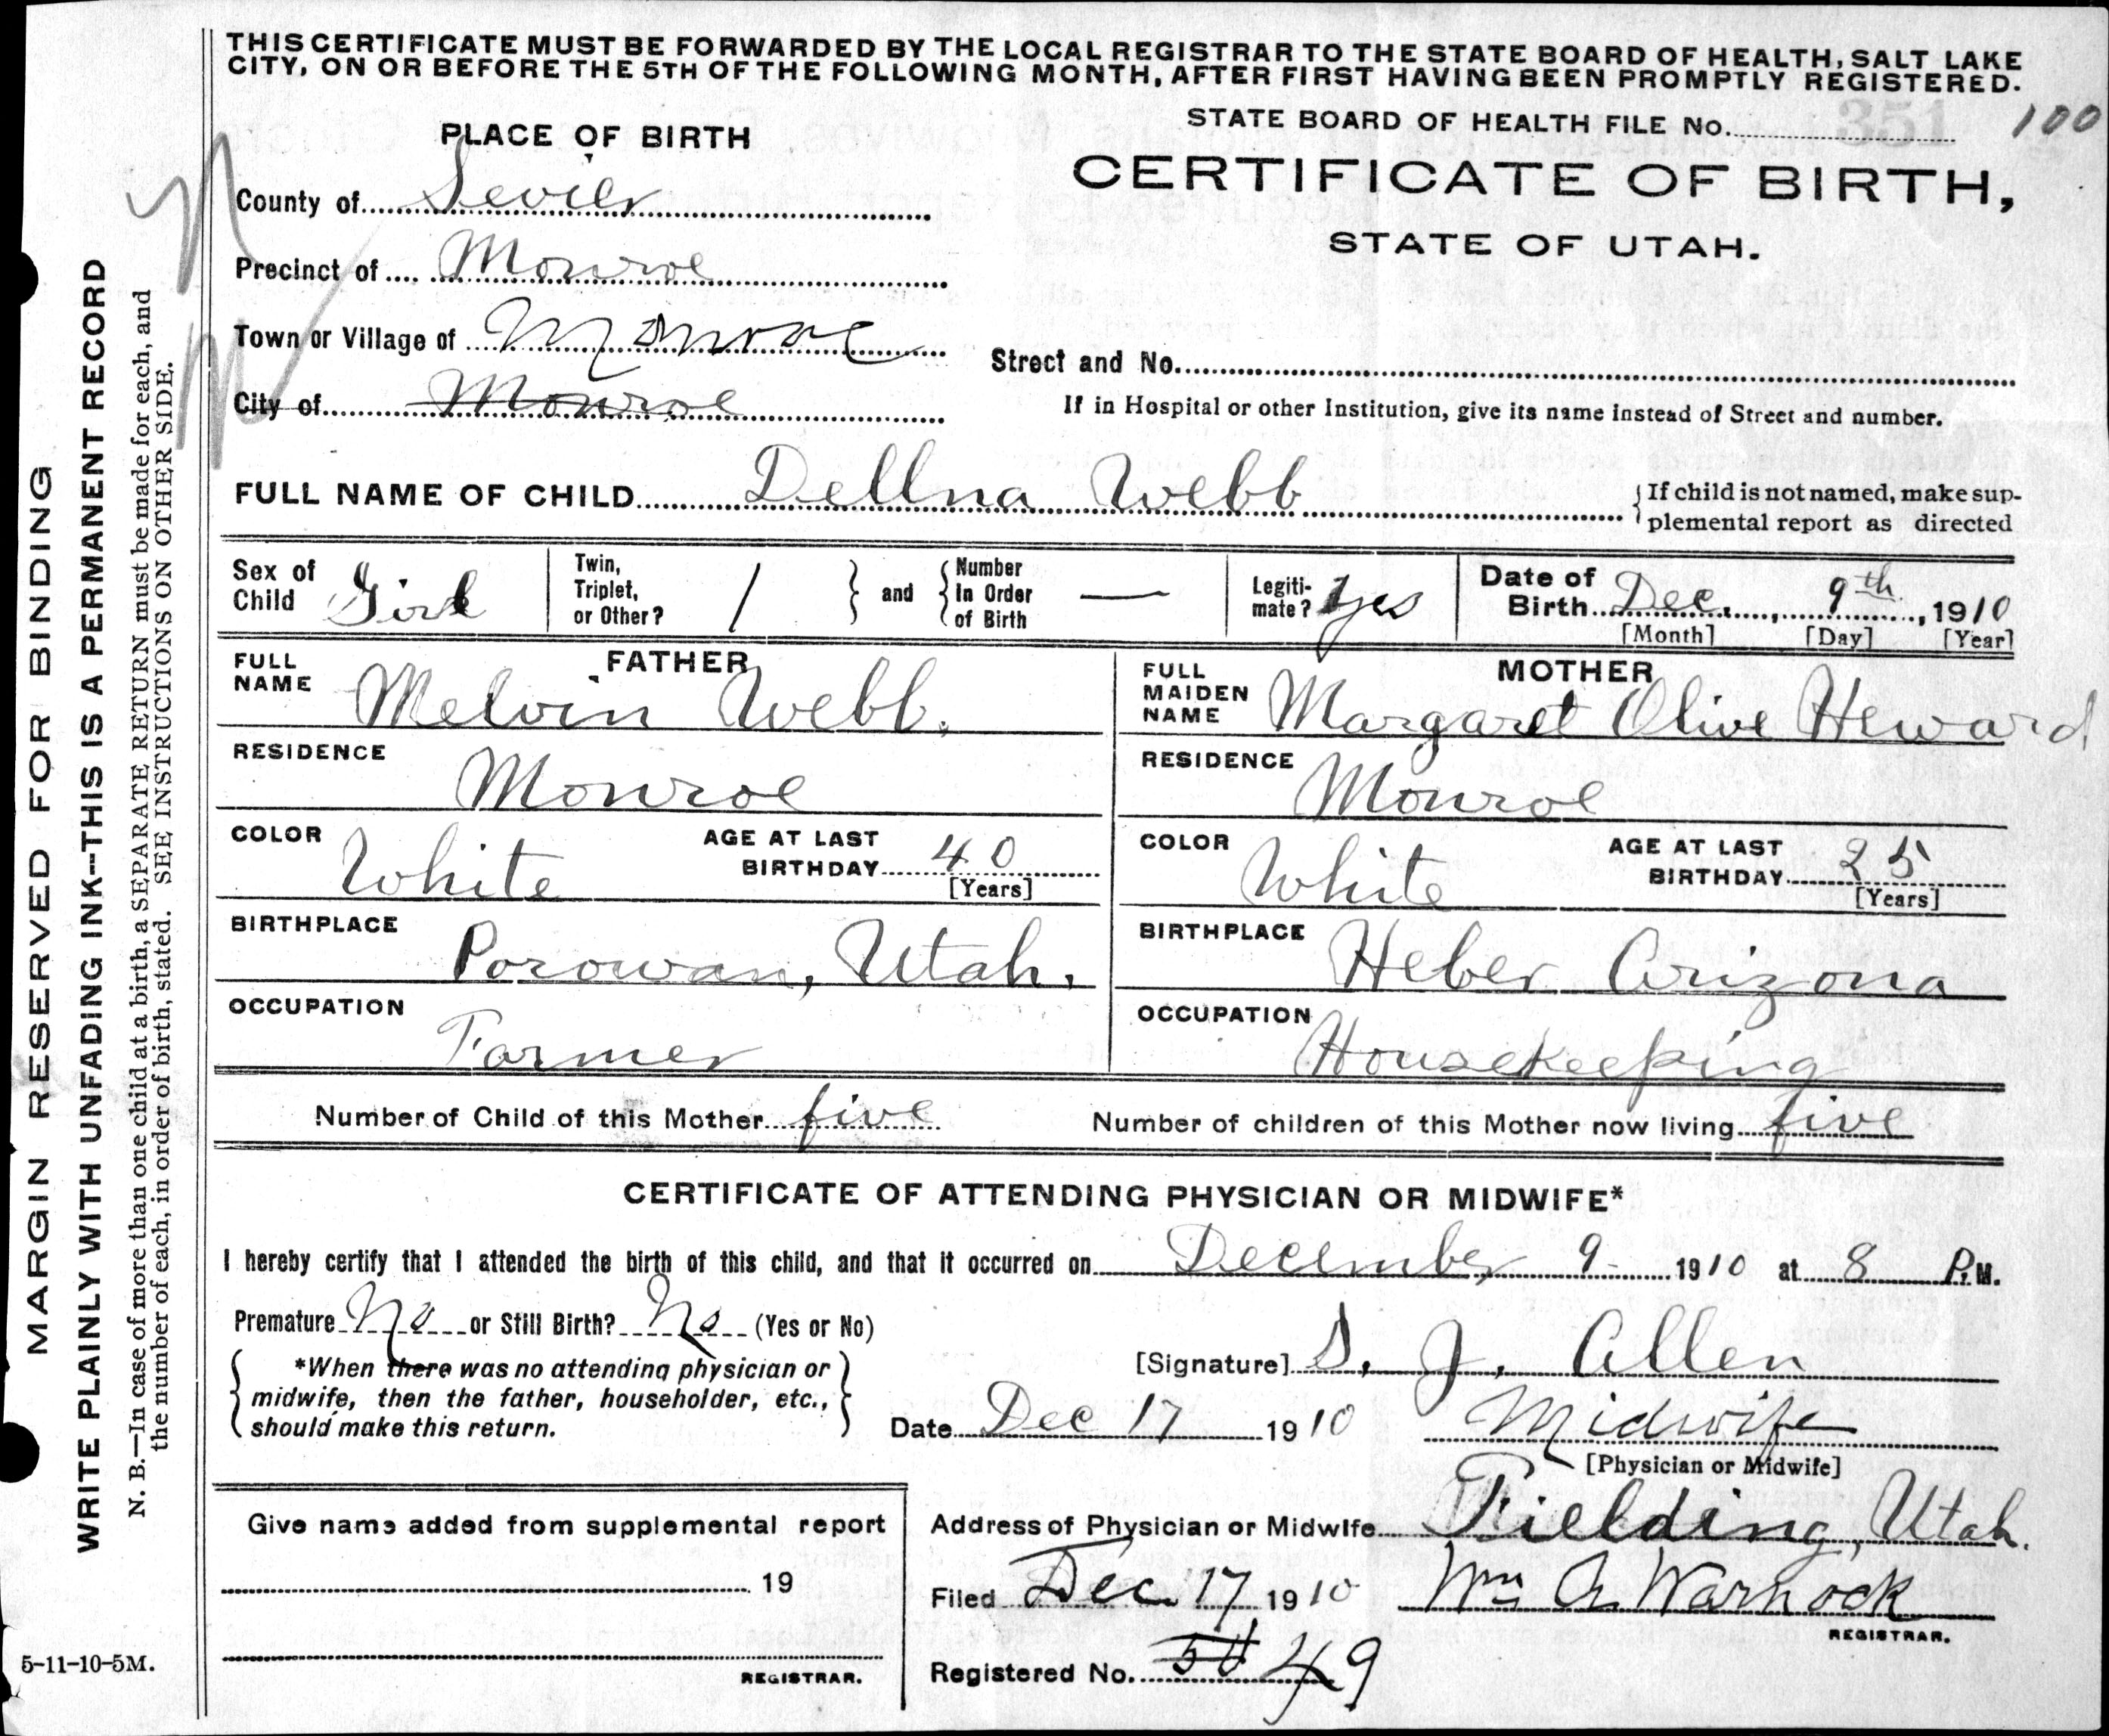 THIS CERTIFICATE MUST BE FORWARDED BY THE LOCAL REGISTRAR TO THE STATE BOARD OF HEALTH, SALT LAKE
CITY, ON OR BEFORE THE 5TH OF THE FOLLOWING MONTH, AFTER FIRST HAVING BEEN PROMPTLY REGISTERED.
STATE BOARD OF HEALTH FILE No. 351 100
PLACE OF BIRTH
CERTIFICATE OF BIRTH,
STATE OF UTAH.
County of Sevier
Precinct of Monroe
Town or Village of Monroe
Street and No.
City of Monroe
If in Hospital or other Institution, give its name instead of Street and number.
FULL NAME OF CHILD Dellna Webb
If child is not named, make sup-
plemental report as directed
Sex of Child Girl
Twin, Triplet, or Other? /
and
Number In Order of Birth —
Legiti-mate? yes
Date of Birth Dec. 9th, 1910
[Month] [Day] [Year]
FATHER
FULL NAME Melvin Webb.
RESIDENCE Monroe
COLOR White
AGE AT LAST BIRTHDAY 40
[Years]
BIRTHPLACE Porowan, Utah.
OCCUPATION Farmer
MOTHER
FULL MAIDEN NAME Margaret Olive Heward
RESIDENCE Monroe
COLOR White
AGE AT LAST BIRTHDAY 25
[Years]
BIRTHPLACE Heber Arizona
OCCUPATION Housekeeping
Number of Child of this Mother five
Number of children of this Mother now living five
CERTIFICATE OF ATTENDING PHYSICIAN OR MIDWIFE*
I hereby certify that I attended the birth of this child, and that it occurred on December 9 1910 at 8 P.M.
Premature No or Still Birth? No (Yes or No)
*When there was no attending physician or
midwife, then the father, householder, etc.,
should make this return.
[Signature] S. J. Allen
Date Dec 17 1910 Midwife
[Physician or Midwife]
Give name added from supplemental report
19
REGISTRAR.
Address of Physician or Midwife Fielding, Utah.
Filed Dec. 17, 1910 Wm A. Warnock
REGISTRAR.
Registered No. 49
5-11-10-5M.
MARGIN RESERVED FOR BINDING
WRITE PLAINLY WITH UNFADING INK--THIS IS A PERMANENT RECORD
N. B.—In case of more than one child at a birth, a SEPARATE RETURN must be made for each, and
the number of each, in order of birth, stated. SEE INSTRUCTIONS ON OTHER SIDE.